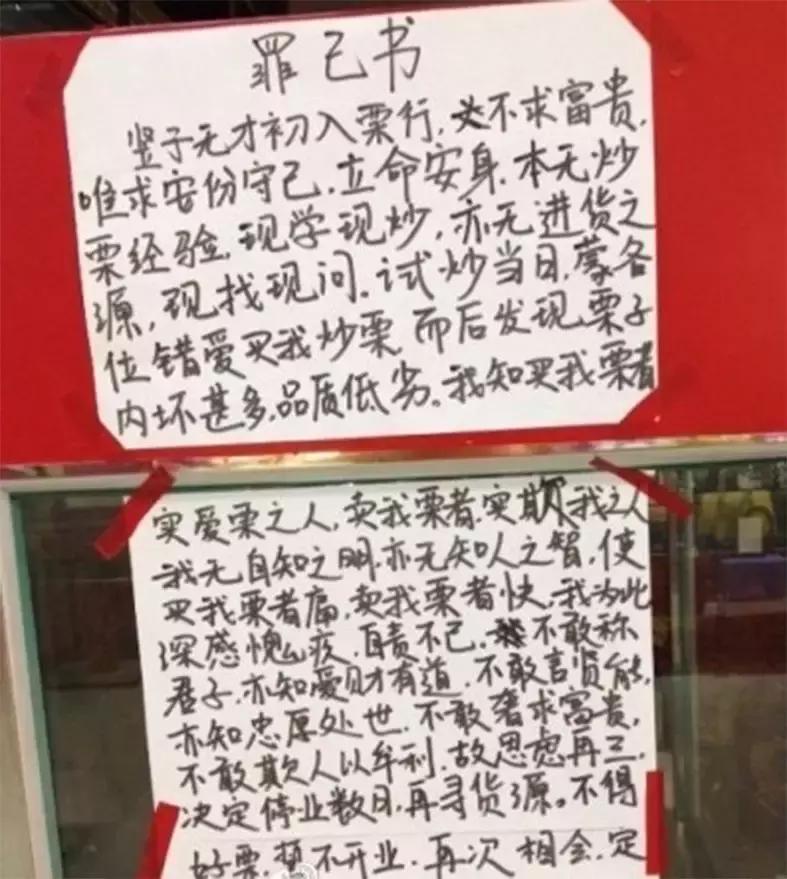 罪己书
竖子无才初入栗行,不求富贵,
唯求安份守己,立命安身,本无炒
栗经验,现学现炒,亦无进货之
源,现找现问,试炒当日,蒙各
位错爱买我炒栗,而后发现栗子
内坏甚多,品质低劣。我知买我栗者
实爱栗之人,卖我栗者,实欺我之人
我无自知之明,亦无知人之智,使
买我栗者痛,卖我栗者快,我为此
深感愧疚,自责不已,不敢称
君子,亦知爱财有道,不敢言贤能,
亦知忠厚处世,不敢奢求富贵,
不敢欺人以牟利,故思虑再三,
决定停业数日,再寻货源。不得
好栗,暂不开业,再次相会,定